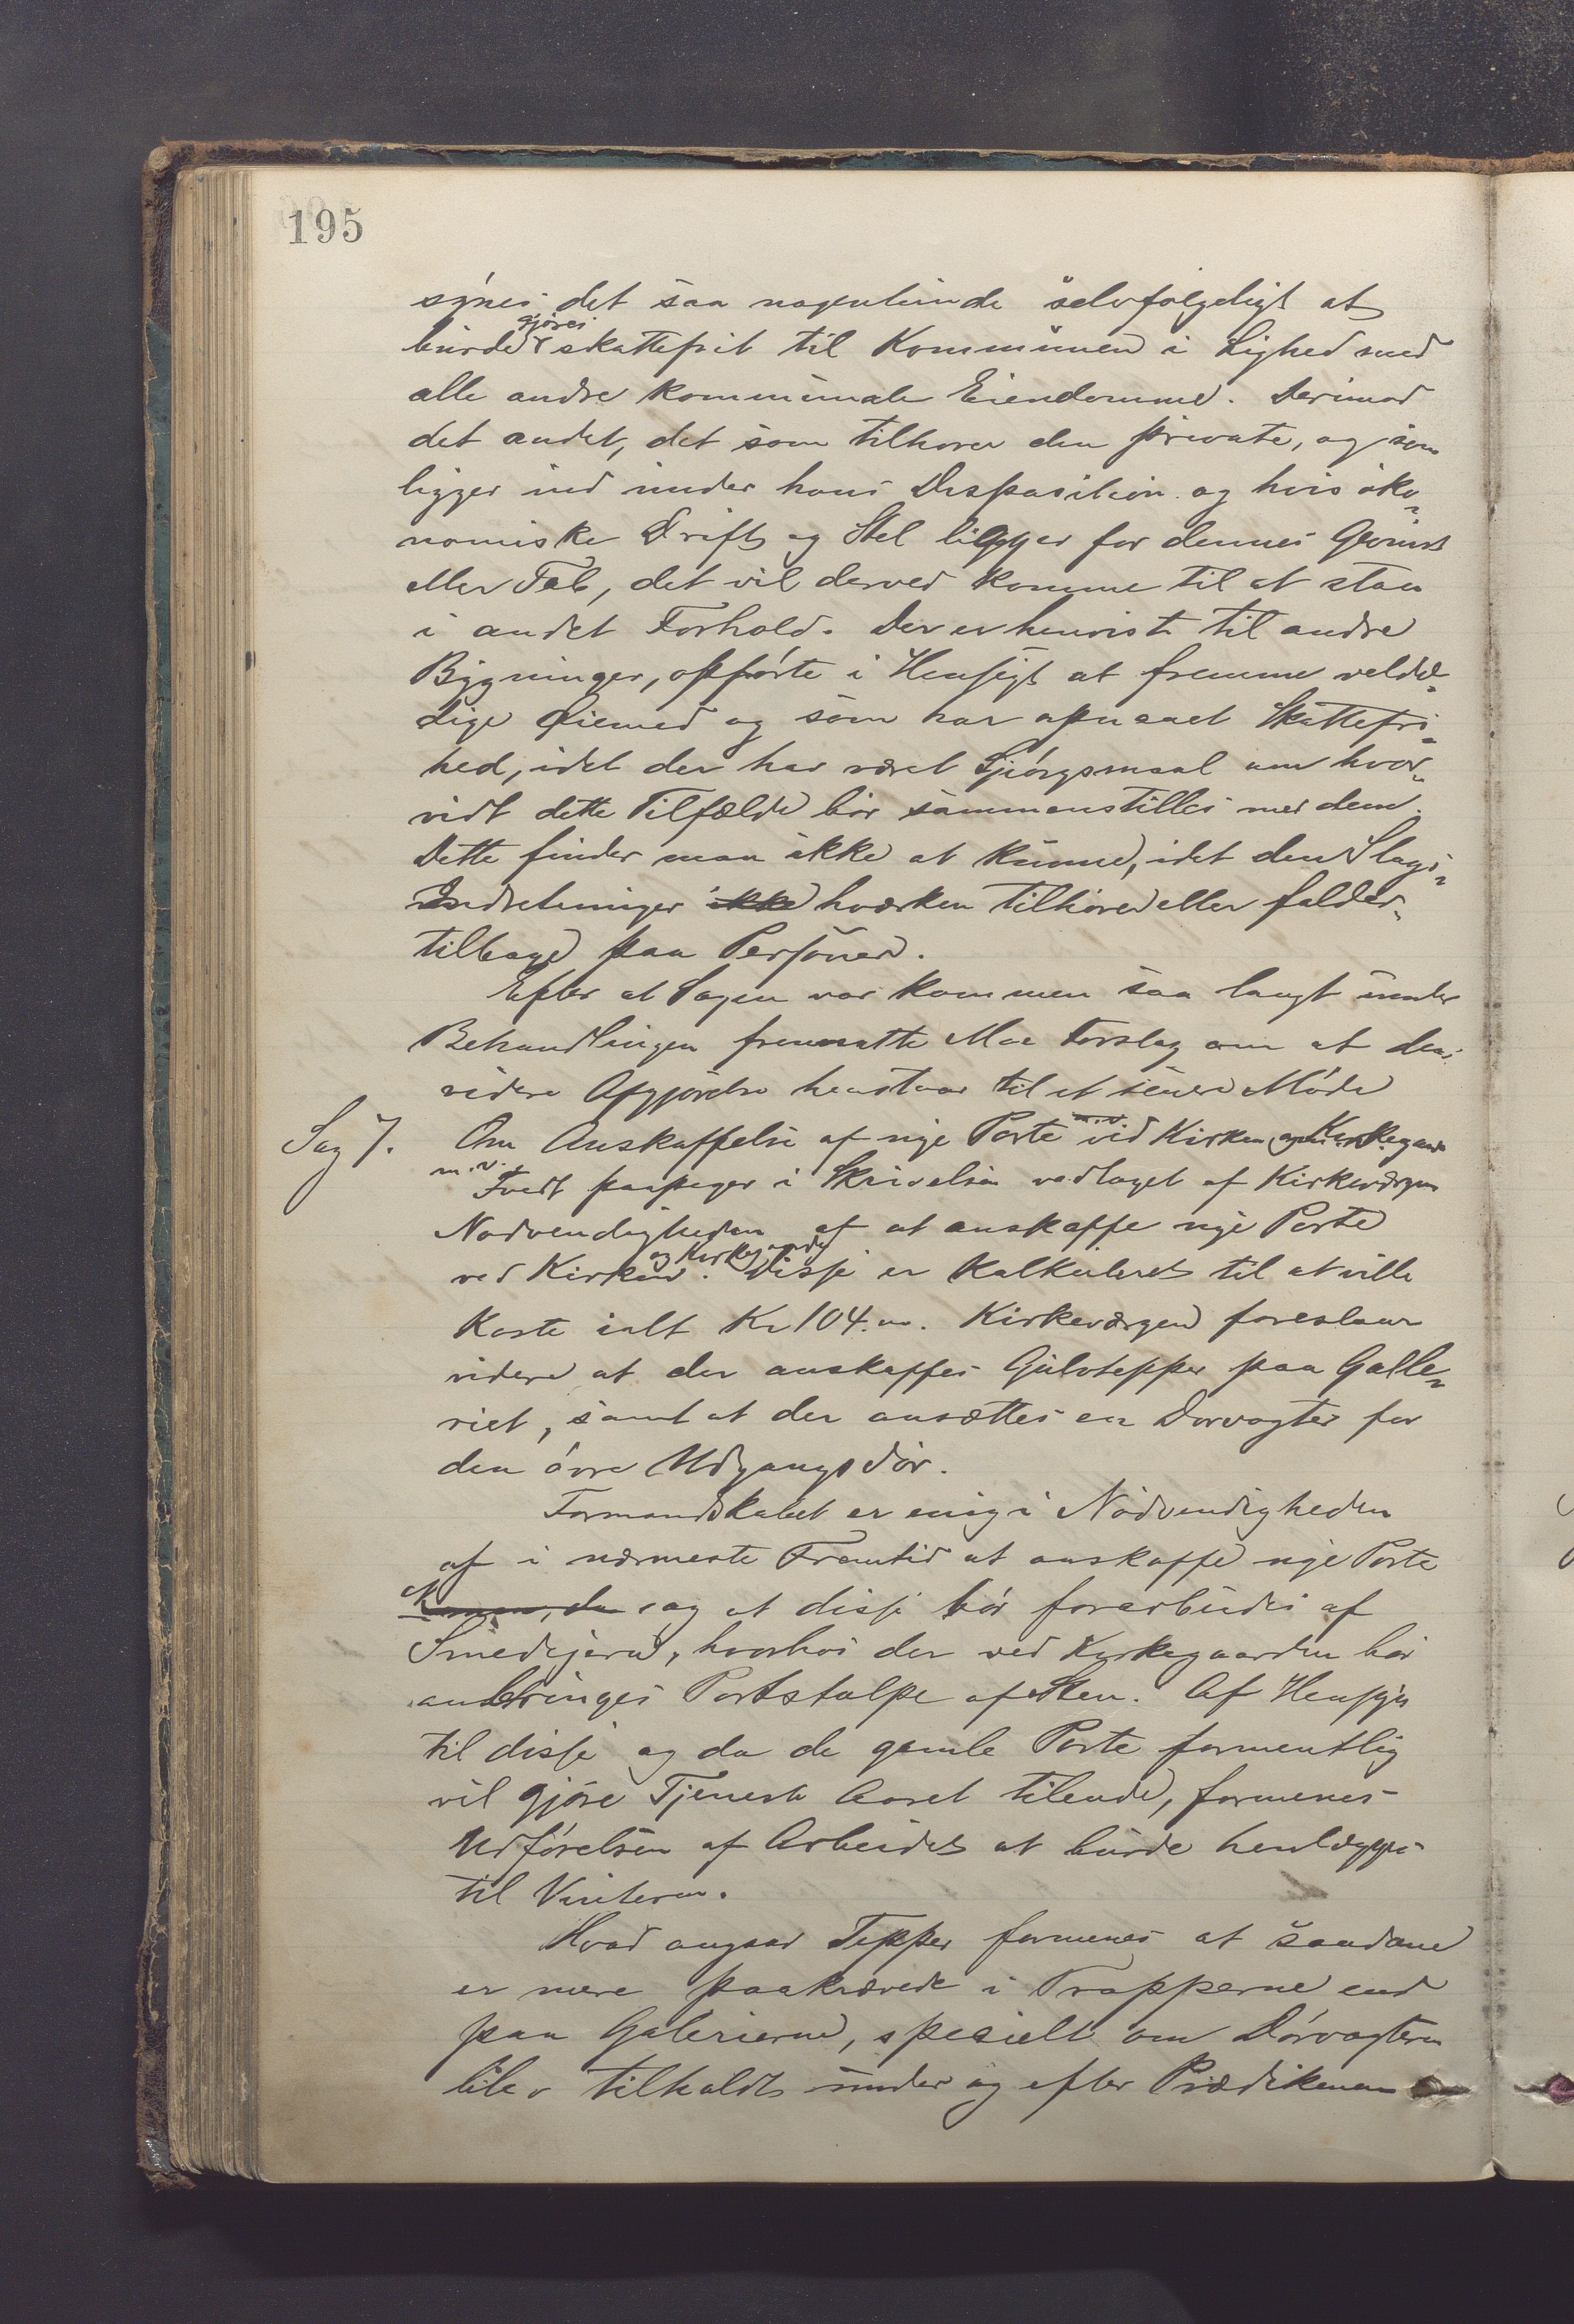 195
synes det saa nogenlunde selvfølgeligt at
burde gjøres skattefrit til Kommunen i Lighed med
alle andre kommunale Eiendomme. Derimod
det andet, det som tilhører den private, og som
ligger ind under hans Disposition og hvis øko-
nomiske Drift og Stel ligger for dennes Gevinst
eller Tab, det vil derved komme til at staa
i andet Forhold. Der er henvist til andre
Bygninger, opførte i Hensigt at fremme veldæ-
dige Øiemed og som har opnaaet Skattefri-
hed, idet der har været Spørgsmaal om hvor-
vidt dette Tilfælde bør sammenstilles med dem.
Dette finder man ikke at kunne, idet den Slags
Indretninger ikke hverken tilhører eller falder
tilbage paa Personer.
Efter at Sagen var kommen saa langt under
Behandlingen fremsatte Moe Forslag om at den
videre Afgjørelse henstaar til et senere Møde
Sag 7. Om Anskaffelse af nye Porte m.v. ved Kirken og Kirkegaard
m.v. Tvedt paapeger i Skrivelse vedtaget af Kirkeværgen
Nødvendigheden af at anskaffe nye Porte
ved Kirken og Kirkegaard. Disse er kalkuleret til at ville
koste ialt Kr 104.00. Kirkeværgen foreslaar
videre at der anskaffes Gulvtepper paa Galle-
riet, samt at der ansættes en Dørvogter for
den øvre Udgangsdør.
Formandskabet er enig i Nødvendigheden
af i nærmeste Fremtid at anskaffe nye Porte
og at disse bør forarbeides af
Smedejern, hvorhos der ved Kirkegaarden bør
anbringes Portstolpe af Sten. Af Hensyn
til disse og da de gamle Porte formentlig
vil gjøre Tjeneste Aaret tilende, formenes
Udførelsen af Arbeidet at burde henlægges
til Vinteren.
Hvad angaar Tepper formenes at saadane
er mere paakrævede i Trapperne end
paa Galerierne, specielt om Dørvogteren
blev tilholdt under og efter Prædikenen